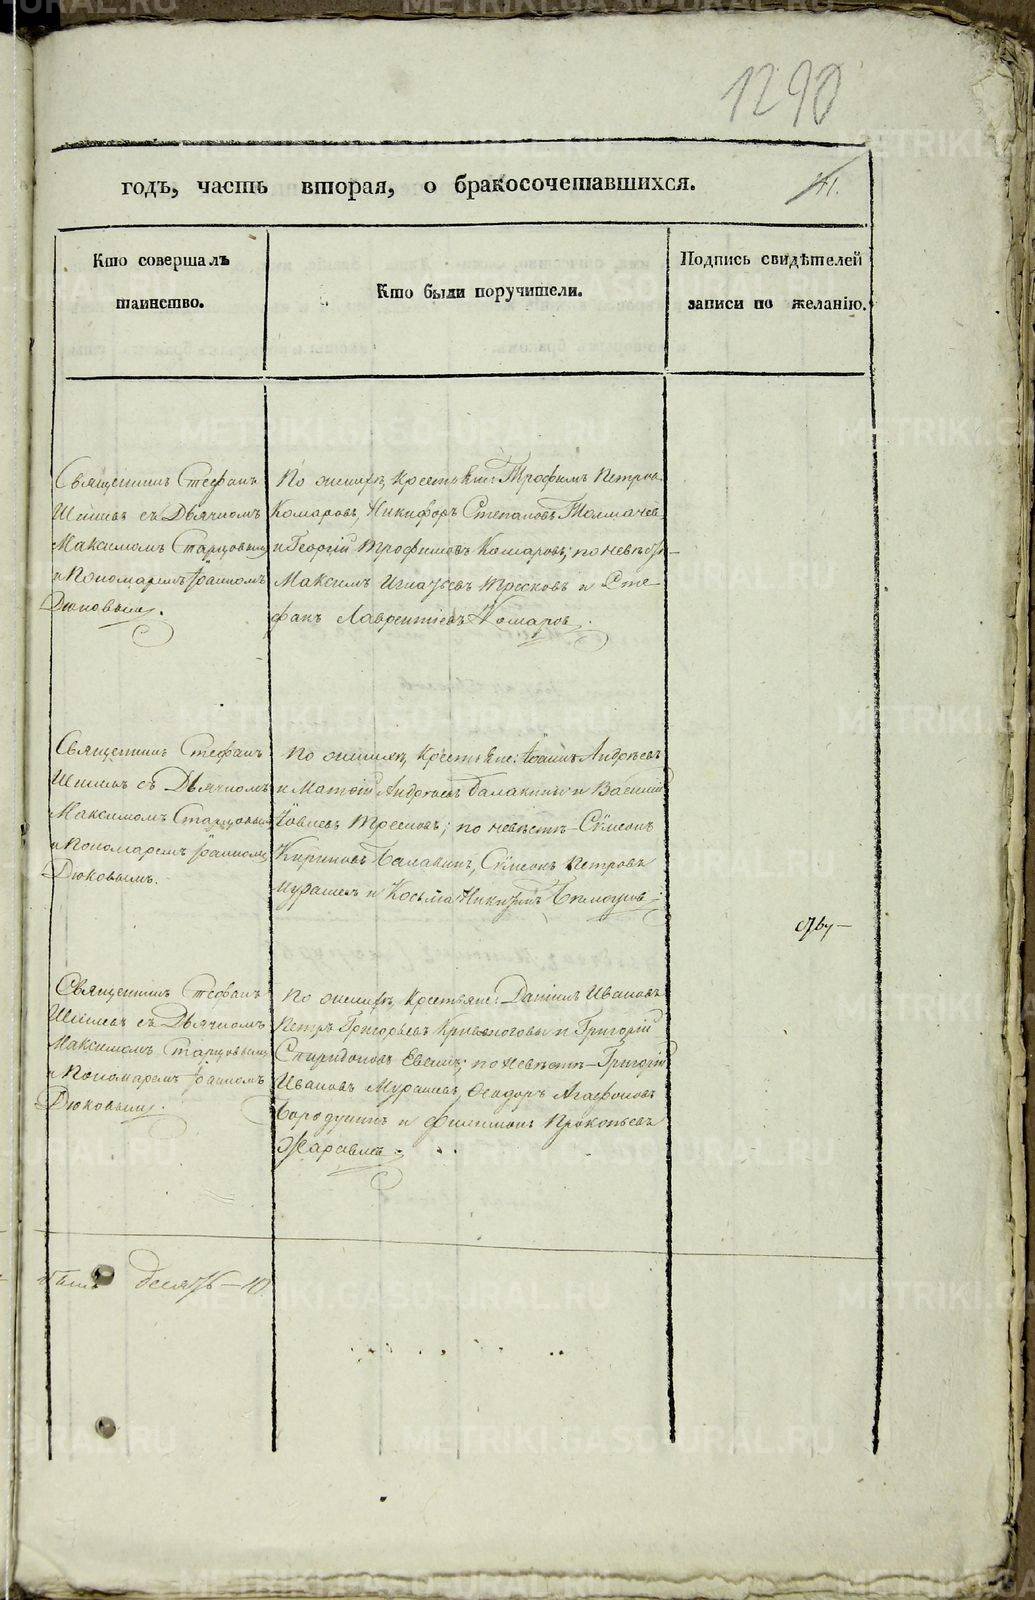 1290
годъ, часть вторая, о бракосочетавшихся.
41.
Кто совершалъ
таинство.
Кто были поручители.
Подпись свидѣтелей
записи по желанію.
Священникъ Стефанъ
съ Дьячкомъ
Максимомъ Старцовымъ
и Пономаремъ Іоанномъ
Дюковымъ.
По женихѣ, Крестьяне: Трофимъ Петровъ
Комаровъ, Никифоръ Степановъ Толмачевъ
и Георгій Трофимовъ Комаровъ; по невѣстѣ
Максимъ Игнатьевъ Трясковъ и Сте
фанъ Лаврентіевъ Комаровъ.
Священникъ Стефанъ
съ Дьячкомъ
Максимомъ Старцовымъ
и Пономаремъ Іоанномъ
Дюковымъ.
По женихѣ, Крестьяне: Іоаннъ Андреевъ
и Матѳій Андреевъ Балакины и Василій
Іовлевъ; по невѣстѣ Сѵмеонъ
Кириловъ Балакинъ, Сѵмеонъ Петровъ
Мурашевъ и Косьма Никитинъ
Священникъ Стефанъ
съ Дьячкомъ
Максимомъ Старцовымъ
и Пономаремъ Іоанномъ
Дюковымъ.
По женихѣ, Крестьяне: Даніилъ Ивановъ
Петръ Григорьевъ Кривоноговы и Григорій
Спиридоновъ; по невѣстѣ Григорій
Ивановъ Мурашевъ, Ѳеодоръ Агафоновъ
Бородулинъ и Филимонъ Прокопьевъ
Жаравлевъ.
десять 10
METRIKI.GASO-URAL.RU